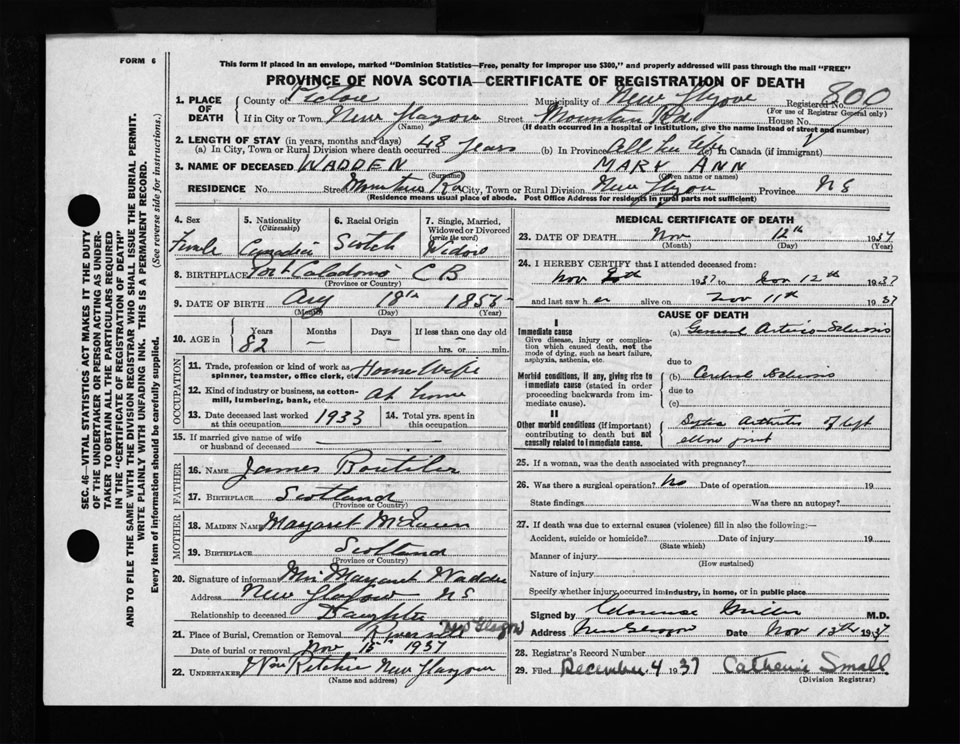 FORM 6
This form if placed in an envelope, marked "Dominion Statistics—Free, penalty for improper use $300," and properly addressed will pass through the mail "FREE"
PROVINCE OF NOVA SCOTIA—CERTIFICATE OF REGISTRATION OF DEATH
1. PLACE OF DEATH County of Pictou Municipality of New Glasgow Registered No. 800
(For use of Registrar General only)
If in City or Town New Glasgow Street Mountain Rd House No.
(Name) (If death occurred in a hospital or institution, give the name instead of street and number)
2. LENGTH OF STAY (in years, months and days)
(a) In City, Town or Rural Division where death occurred 48 years (b) In Province All her life (c) In Canada (if immigrant)
3. NAME OF DECEASED WADDEN MARY ANN
(Surname) (Given name or names)
RESIDENCE No. Street Mountain Rd City, Town or Rural Division New Glasgow Province NS
(Residence means usual place of abode. Post Office Address for residents in rural parts not sufficient)
SEC. 46—VITAL STATISTICS ACT MAKES IT THE DUTY
OF THE UNDERTAKER OR PERSON ACTING AS UNDER-
TAKER TO OBTAIN ALL THE PARTICULARS REQUIRED
IN THE "CERTIFICATE OF REGISTRATION OF DEATH"
AND TO FILE THE SAME WITH THE DIVISION REGISTRAR WHO SHALL ISSUE THE BURIAL PERMIT.
WRITE PLAINLY WITH UNFADING INK. THIS IS A PERMANENT RECORD.
Every item of Information should be carefully supplied. (See reverse side for instructions.)
4. Sex 5. Nationality (Citizenship) 6. Racial Origin 7. Single, Married, Widowed or Divorced (write the word)
Female Canadian Scotch Widow
8. BIRTHPLACE Port Caledonia C B
(Province or Country)
9. DATE OF BIRTH Aug 18th 1855
(Month) (Day) (Year)
10. AGE in Years Months Days If less than one day old
82 — — hrs. or min.
OCCUPATION
11. Trade, profession or kind of work as spinner, teamster, office clerk, etc. House Wife
12. Kind of industry or business, as cotton-mill, lumbering, bank, etc. At home
13. Date deceased last worked at this occupation 1933 14. Total yrs. spent in this occupation
15. If married give name of wife or husband of deceased
FATHER
16. NAME James Boutilier
17. BIRTHPLACE Scotland
(Province or Country)
MOTHER
18. MAIDEN NAME Margaret McQueen
19. BIRTHPLACE Scotland
(Province or Country)
20. Signature of informant Miss Margaret Wadden
Address New Glasgow NS
Relationship to deceased Daughter
21. Place of Burial, Cremation or Removal Riverside New Glasgow
Date of burial or removal Nov 15 1937
22. UNDERTAKER Ritchie New Glasgow
(Name and address)
MEDICAL CERTIFICATE OF DEATH
23. DATE OF DEATH Nov 12th 1937
(Month) (Day) (Year)
24. I HEREBY CERTIFY that I attended deceased from:
Nov 1937 to Nov 12th 1937
and last saw her alive on Nov 11th 1937
CAUSE OF DEATH
I
Immediate cause (a) General Arterio-Sclerosis
Give disease, injury or complication which caused death, not the mode of dying, such as heart failure, asphyxia, asthenia, etc.
due to
Morbid conditions, if any, giving rise to immediate cause (stated in order proceeding backwards from immediate cause). (b) Cerebral Sclerosis
due to
(c)
II
Other morbid conditions (if important) contributing to death but not causally related to immediate cause. Septic Arthritis of left
elbow joint
25. If a woman, was the death associated with pregnancy?
26. Was there a surgical operation? No Date of operation 19
State findings Was there an autopsy?
27. If death was due to external causes (violence) fill in also the following:—
Accident, suicide or homicide? Date of injury 19
(State which)
Manner of injury
(How sustained)
Nature of injury
Specify whether injury occurred in industry, in home, or in public place
Signed by Clarence Miller M.D.
Address New Glasgow Date Nov 13th 1937
28. Registrar's Record Number
29. Filed December 4 1937 Catherine Small
(Division Registrar)